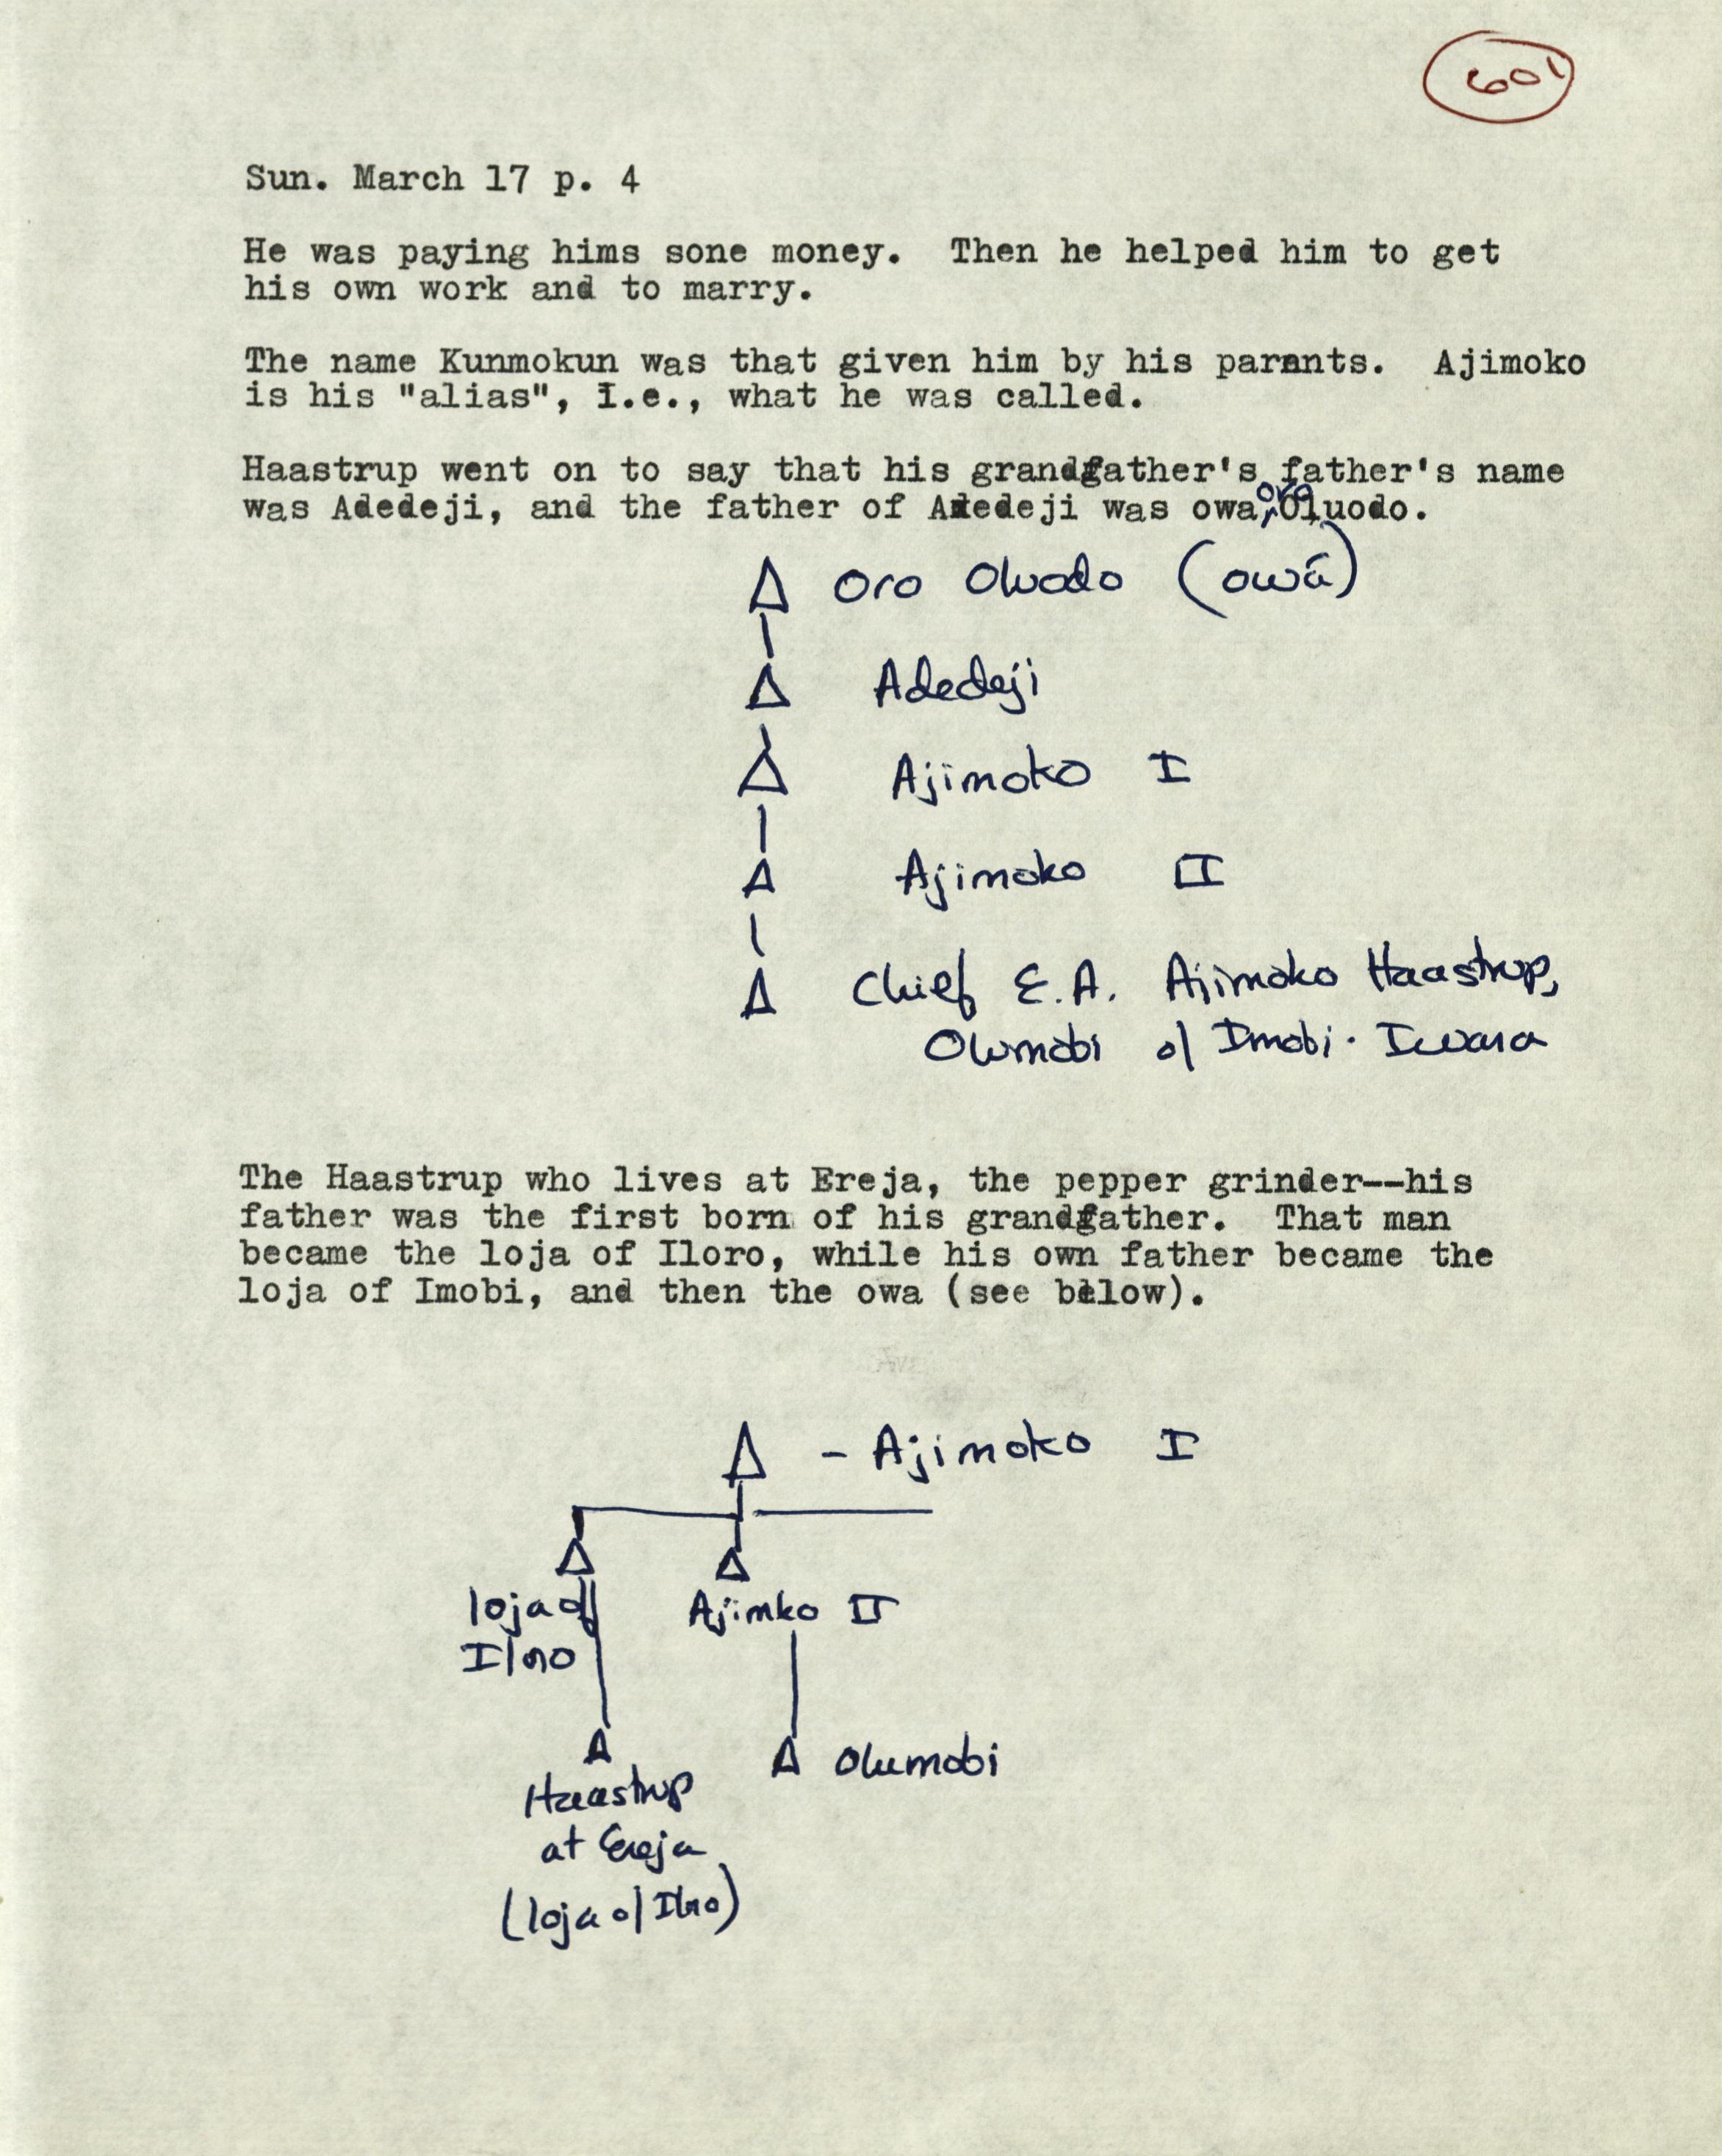 601
Sun. March 17 p. 4
He was paying hims sone money.  Then he helped him to get
his own work and to marry.
The name Kunmokun was that given him by his parents.  Ajimoko
is his "alias", I.e., what he was called.
Haastrup went on to say that his grandfather's father's name
was Adedeji, and the father of Adedeji was owa, oro Oluodo.
Oro Oluodo (owa)
Adedeji
Ajimoko I
Ajimoko II
Chief E.A. Ajimoko Haastrup,
Olumobi of Imobi. Iwara
The Haastrup who lives at Ereja, the pepper grinder--his
father was the first born of his grandfather.  That man
became the loja of Iloro, while his own father became the
loja of Imobi, and then the owa (see below).
- Ajimoko I
loja of
Iloro
Ajimko II
Olumobi
Haastrup
at Ereja
(loja of Iloro)